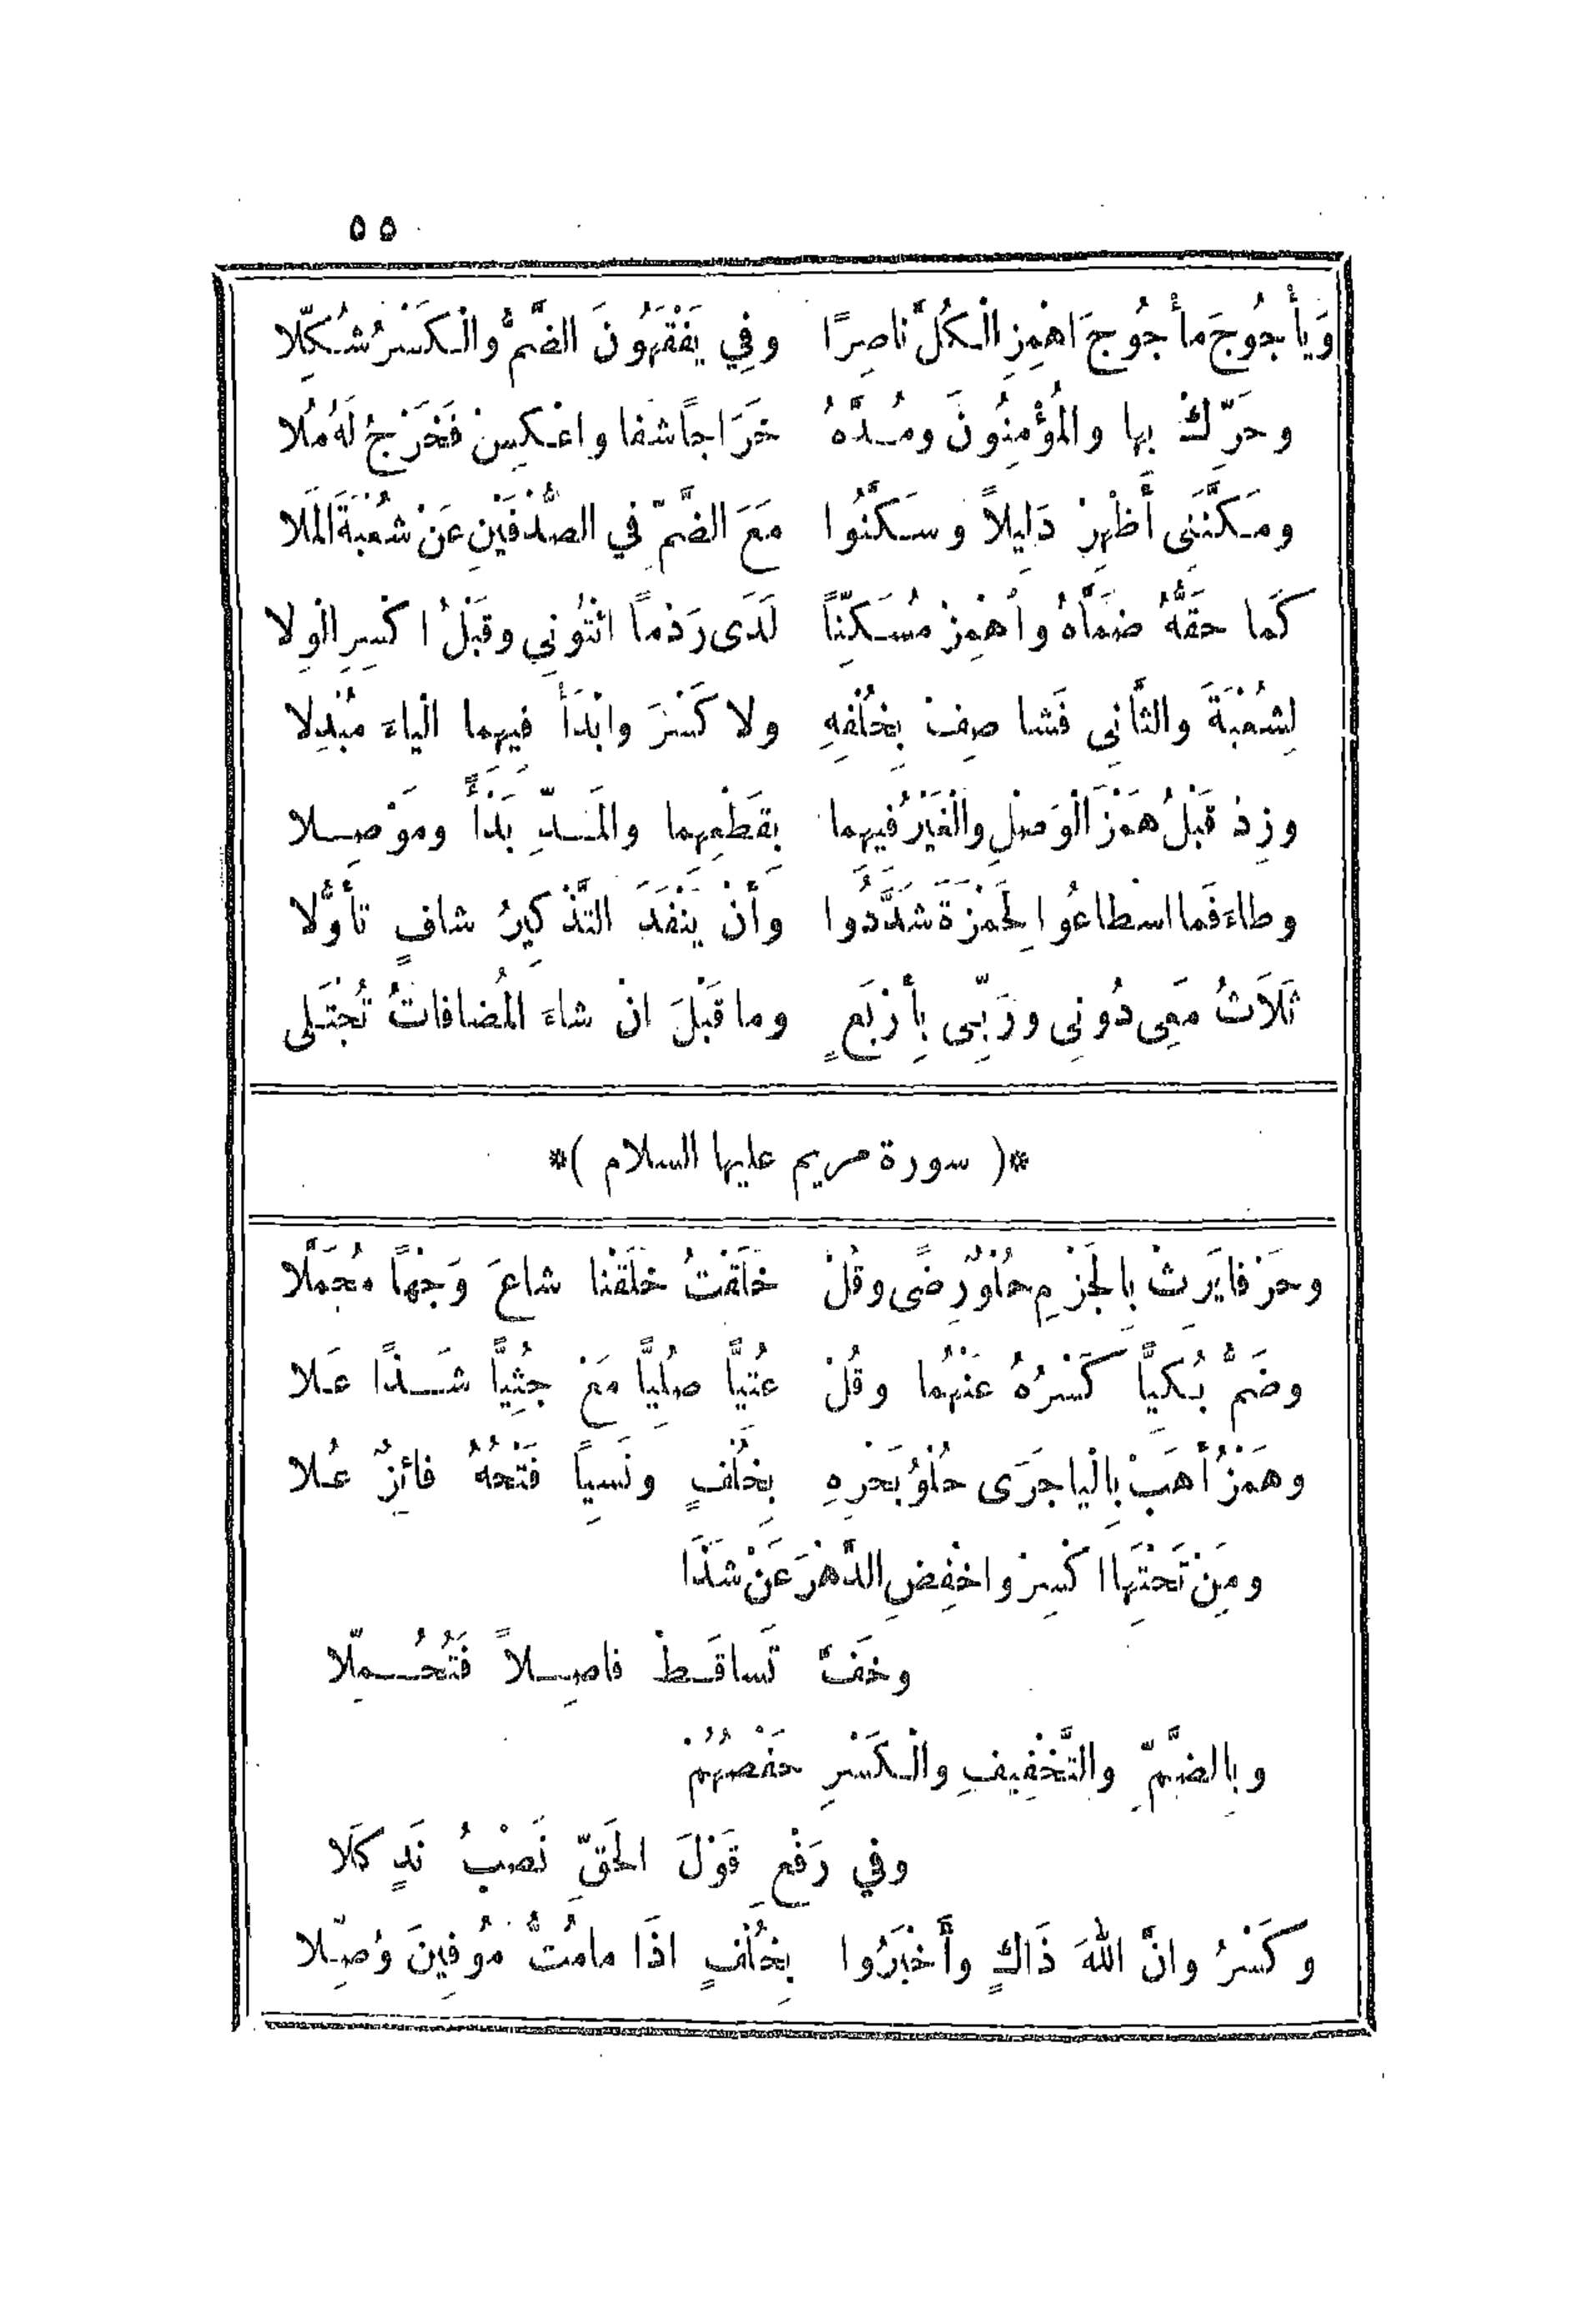 ٥٥
وَيَأْجُوجَ مأْجُوجَ اهْمِزِ الْكُلَّ ناصِرًا وفِي يَفْقَهُونَ الضَّمُّ والْكَسْرُ شُكِّلا
وحَرِّكْ بها والمُؤْمِنُونَ ومُدَّهُ خَرَاجًا شفا واعْكِسْ فَخَرْجُ لَهُ مُلا
ومَكَّنَنِى أَظْهِرْ دَلِيلاً وسَكَّنُوا مَعَ الضَّمِّ فِي الصُّدْفَيْنِ عَنْ شُعْبَةَ المَلا
كَما حَقُّهُ ضَمَّاهُ واْهْمِزْ مُسَكِّنّاً لَدَى رَدْماً ائْتُونِي وقَبْلُ اكْسِرِ الْوِلا
لِشُعْبَةَ والثَّانِي فَشا صِفْ بِخُلْفِهِ ولا كَسْرَ وابْدَأْ فِيهِما الْياءَ مُبْدِلا
وزِدْ قَبْلُ هَمْزَ الْوَصْلِ والْغَيْرُ فِيهِما بِقَطْعِهِما والمَدِّ بَدْأً ومَوْصِلا
وطاءَ فَما اسْطاعُوا لِحَمْزَةَ شَدَّدُوا وأَنْ يَنْفَدَ التَّذْكِيرُ شافٍ تأَوُّلا
ثَلاَثُ مَعِى دُونِي ورَبِّى بِأَرْبَعٍ وما قَبْلَ انْ شاءَ المُضافاتُ تُجْتَلى
*( سورة مريم عليها السلام )*
وحَرْفا يَرِثْ بِالجَزْمِ حُلْوُ رِضًى وقُلْ خَلَقْتُ خَلَقْنا شاعَ وَجْهاً مُجَمَّلا
وضَمُّ بُكِيًّا كَسْرُهُ عَنْهُما وقُلْ عُتِيًّا صُلِيًّا مَعْ جِثِيًّا شَذًا عَلا
وهَمْزُ أَهَبْ بِالْيا جَرَى حُلْوُ بَحْرِهِ بِخُلْفٍ ونَسِياً فَتْحُهُ فائِزٌ عُلا
ومَِنْ تَحْتَِهَا اكْسِرْ واخْفِضِ الدَّهْرَ عَنْ شَذَا
وخَفَّ تَساقَطْ فاصِلاً فَتُحُمِّلا
وبِالضَّمِّ والتَّخْفِيفِ والْكَسْرِ حَفْصُهُمْ
وفي رَفْعِ قَوْلَ الحَقِّ نَصْبُ نَدٍ كَلا
وكَسْرُ وانَّ اللهَ ذَاكٍ وأَخْبَرُوا بِخُلْفٍ اذَا مامُتُّ مُوفِينَ وُصِّلا